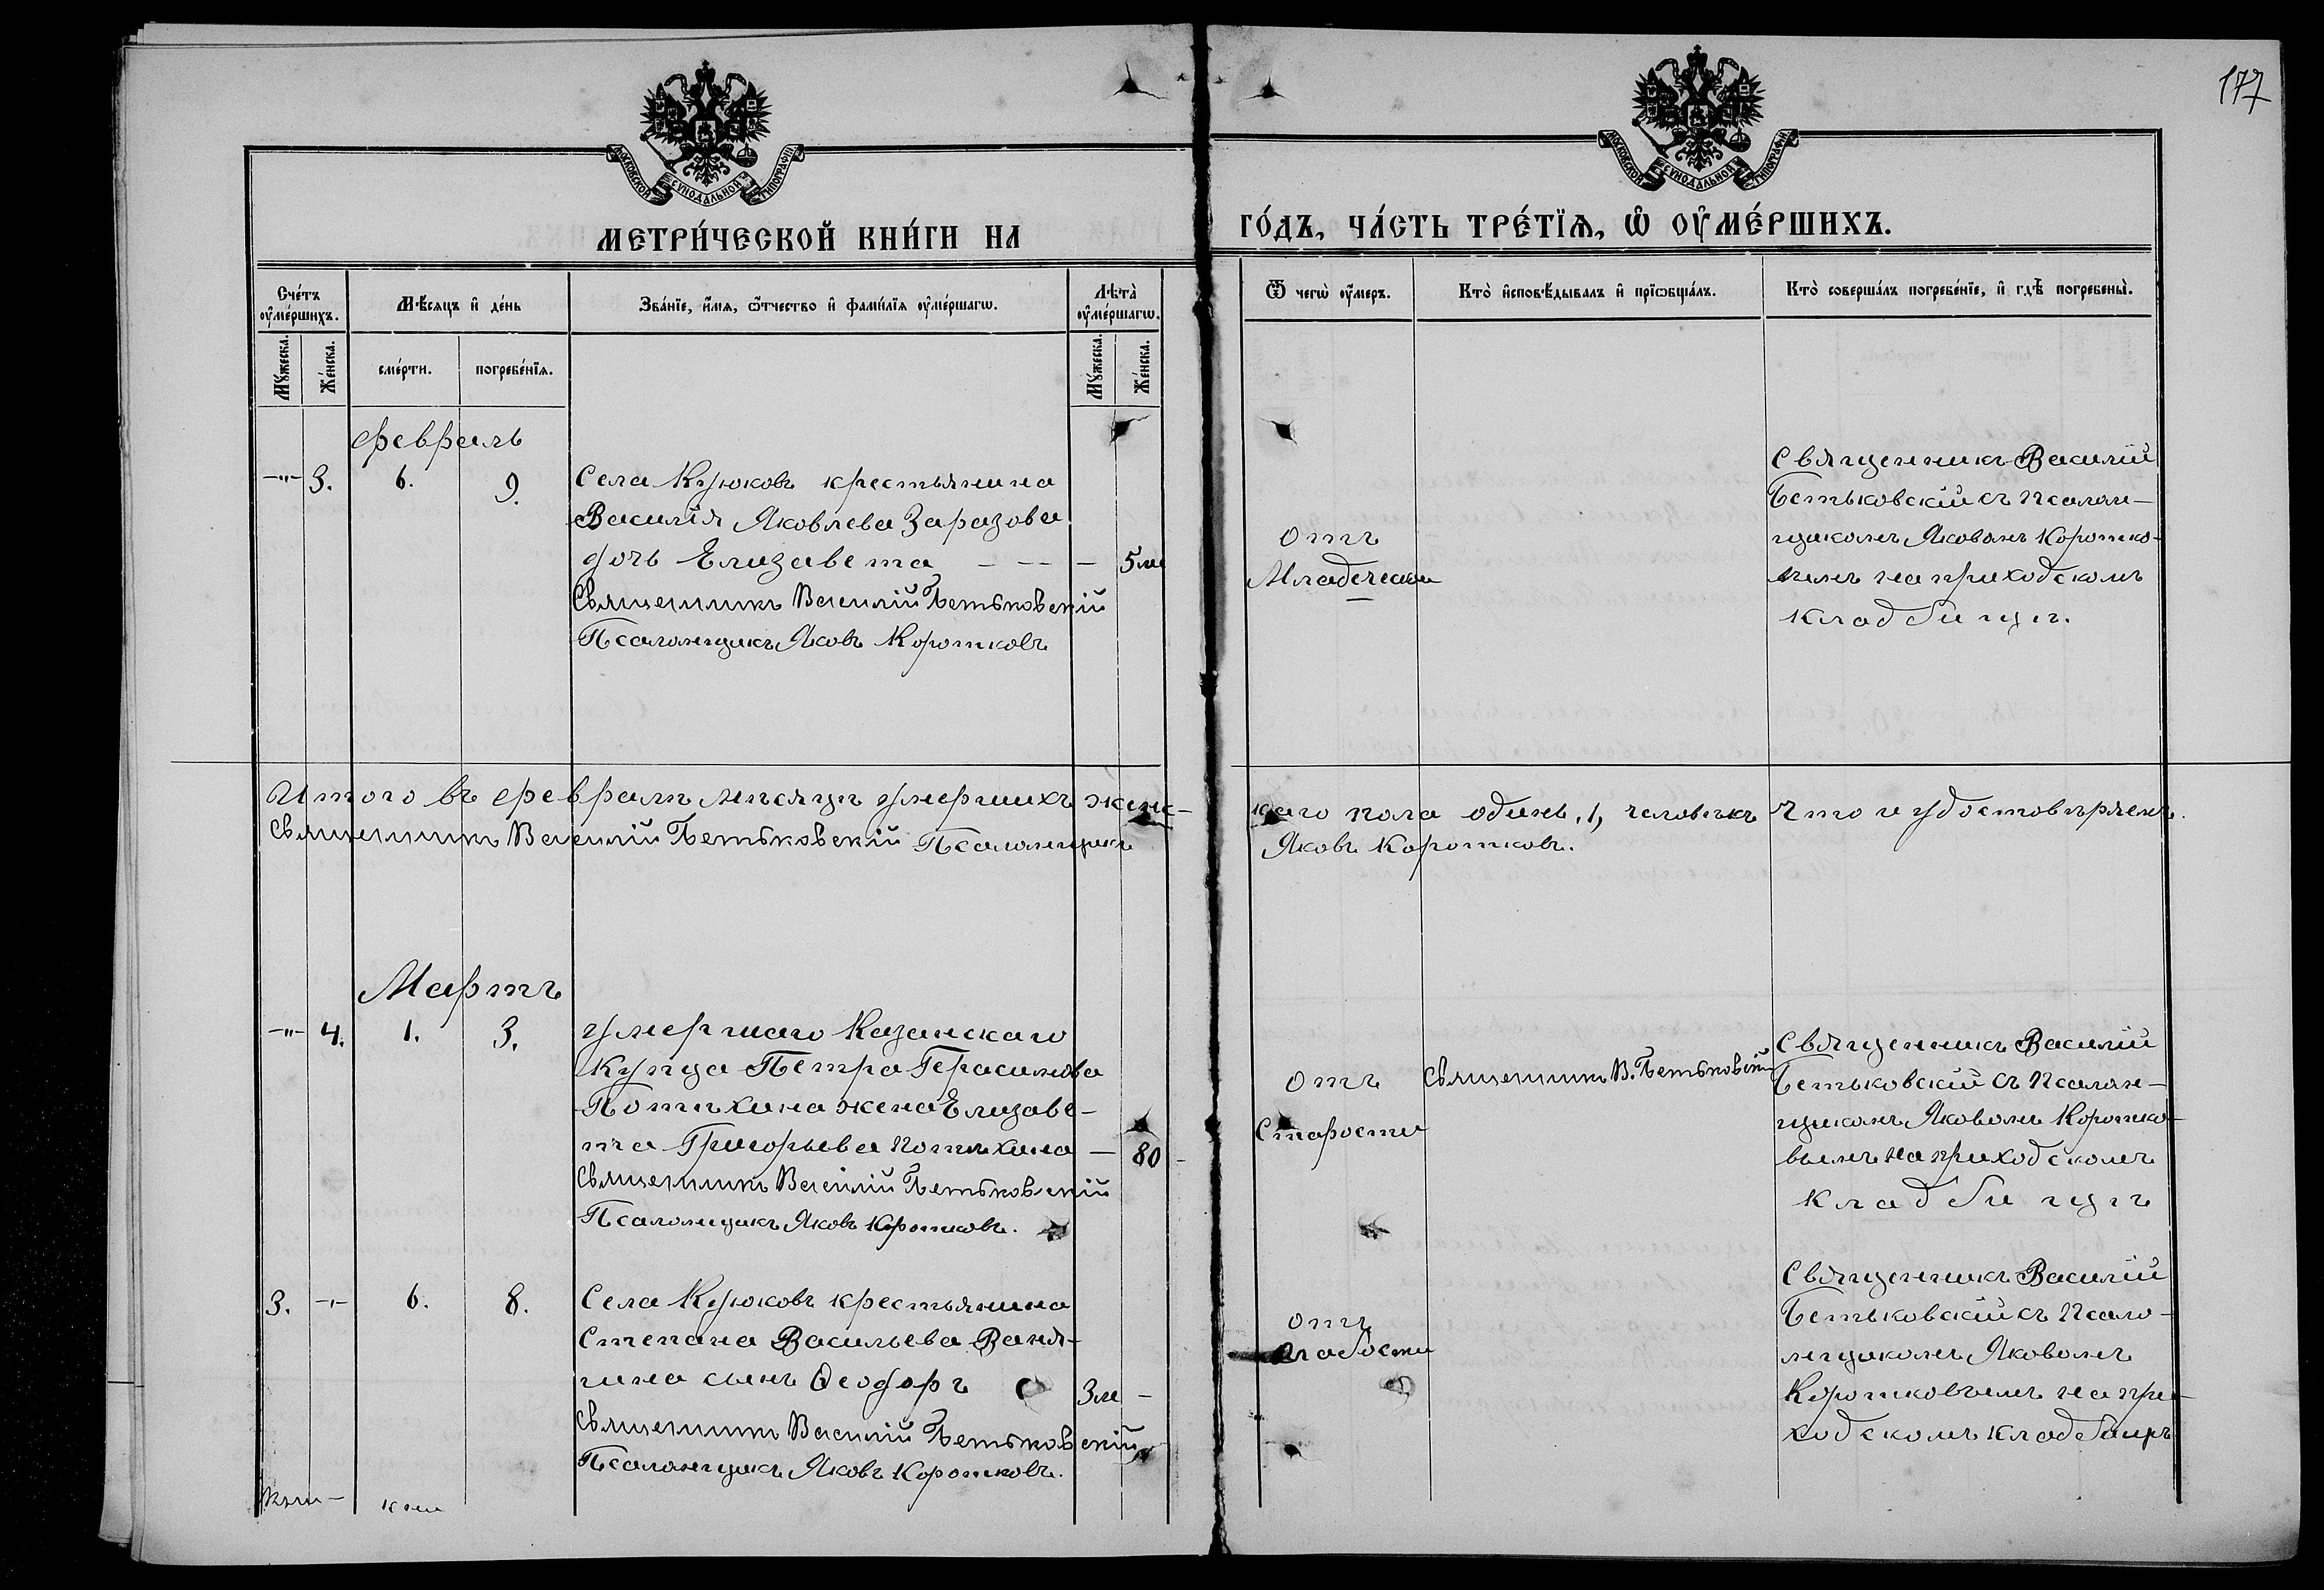 177
МОСКОВСКОЙ СУНОДАЛЬНОЙ ТИПОГРАФІИ
МОСКОВСКОЙ СУНОДАЛЬНОЙ ТИПОГРАФІИ
МЕТРИ́ЧЕСКОЙ КНИ́ГИ НА ГО́ДЪ, ЧА́СТЬ ТРЕ́ТЇѦ, Ѡ҆ ОУ҆МЕ́РШИХЪ.
Сче́тъ оу҆ме́ршихъ.
Мѣ́сяцъ и҆ де́нь
Зва́нїе, и҆́мѧ, ѻ҆́тчество и҆ фами́лїѧ оу҆ме́ршагѡ.
Лѣ́та̀ оу҆ме́ршагѡ.
Ѿ чегѡ̀ оу҆́меръ.
Кто̀ и҆сповѣ́дывалъ и҆ прїѡбща́лъ.
Кто̀ соверша́лъ погребе́нїе, и҆ гдѣ̀ погребены̀.
Мꙋ́жеска. Же́нска. сме́рти. погребе́нїѧ. Мꙋ́жеска. Же́нска.
февраль
—"— 3. 6. 9.
Села Крюковъ крестьянина
Василія Яковлева Заразова
дочь Елизавета — — — — 5 м
Священникъ Василій Бетьковскій
Псаломщикъ Яковъ Коротковъ
отъ
Младенческой
Священникъ Василій
Бетьковскій съ псалом-
щикомъ Яковомъ Коротко-
вымъ на приходскомъ
кладбищѣ.
Итого въ февралѣ мѣсяцѣ умершихъ женс- каго пола одинъ, 1, человѣкъ Что и удостовѣряемъ.
Священникъ Василій Бетьковскій Псаломщикъ Яковъ Коротковъ.
Мартъ
—"— 4. 1. 3.
умершаго Казанскаго
Купца Петра Герасимова
Потѣхина жена Елизаве-
та Григорьева Потѣхина — 80 —
Священникъ Василій Бетьковскій
Псаломщикъ Яковъ Коротковъ.
отъ
Старости
Священникъ В. Бетьковскій
Священникъ Василій
Бетьковскій съ псалом-
щикомъ Яковомъ Коротко-
вымъ на приходскомъ
кладбищѣ
3. —"— 6. 8.
Села Крюковъ крестьянина
Степана Васильева Ваня-
гина сынъ Ѳеодоръ 3 м —
Священникъ Василій Бетьковскій
Псаломщикъ Яковъ Коротковъ.
отъ
слабости
Священникъ Василій
Бетьковскій съ псало-
мщикомъ Яковомъ
Коротковымъ на при-
ходскомъ кладбищѣ